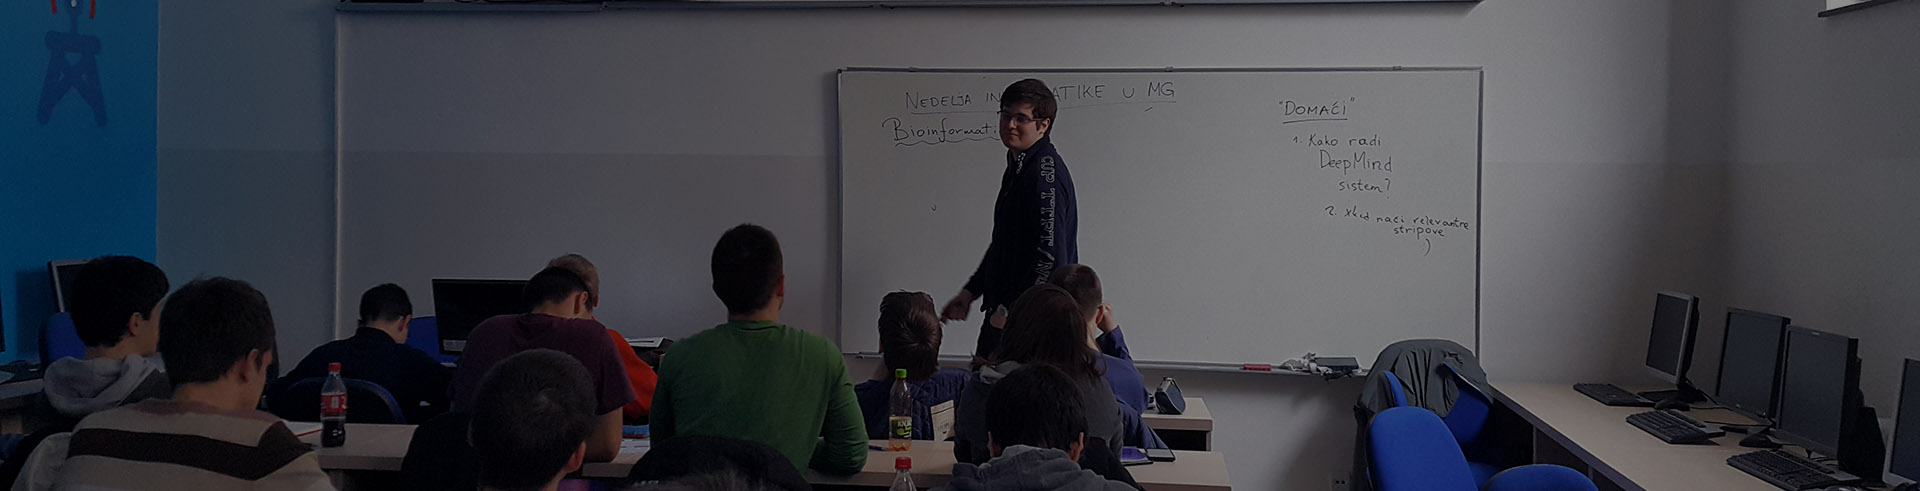 NEDELJA IN ATIKE U MG
Bioinformati
"DOMAĆI"
1. Kako radi
DeepMind
sistem?
2. xkcd naći relevantne
stripove
)